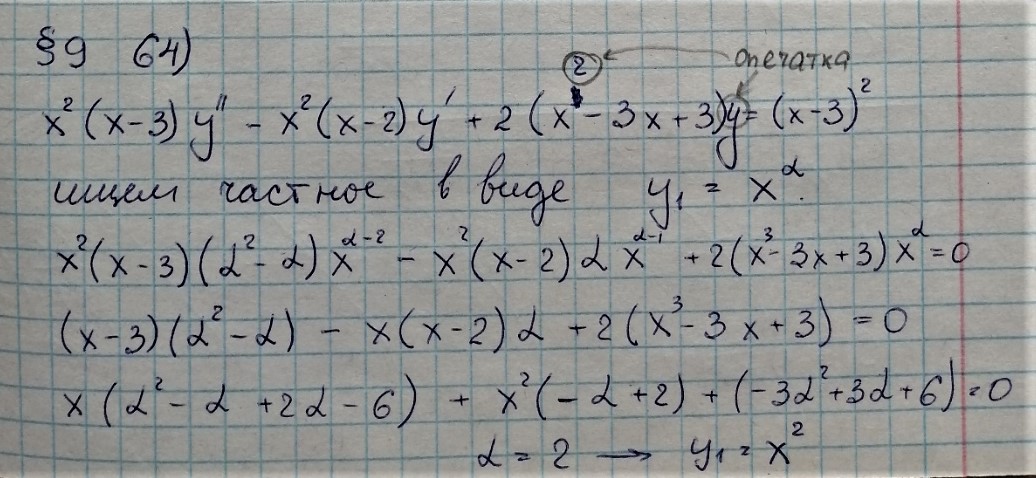 §9 64)
2 опечатка
x²(x-3)y'' - x²(x-2)y' + 2(x² - 3x+3)y = (x-3)²
ищем частное в виде y₁ = x^α.
x²(x-3)(α²-α)x^{α-2} - x²(x-2)αx^{α-1} + 2(x³-3x+3)x^α = 0
(x-3)(α²-α) - x(x-2)α + 2(x³-3x+3) = 0
x(α²-α+2α-6) + x²(-α+2) + (-3α²+3α+6) = 0
α = 2 → y₁ = x²